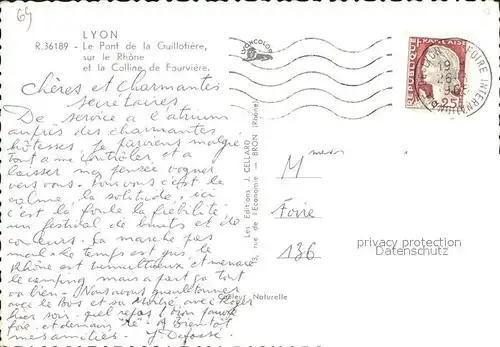 69
LYON
R.36189 - Le Pont de la Guillotière,
sur le Rhône
et la Colline de Fourvière.
Chères et Charmantes
secrétaires
De service a l'atrium
auprès des charmantes
hôtesses, je parviens malgré
tout a me contrôler et a
laisser ma pensée voguer
vers vous. Pour vous c'est le
calme, la solitude, ici
c'est la foule la fiébilité
un festival de bruits et de
couleurs. Ca marche pas
mal. Le temps est gris, le
Rhône est tumultueux et menace
le camping mais a part ça tout
va bien.
le Bois et sa Moitié, avec Roger
hier soir. quel repas! bien
fois et demain "Ré". A Bientôt
mes amitiés. J. Defosse
COMBICOLOR
Les Editions J. CELLARD
13, rue de l'Economie - BRON (Rhône)
Couleur Naturelle
REPUBLIQUE FRANÇAISE
0,25
FOIRE INTERN
19
Foire
136
privacy protection
Datenschutz